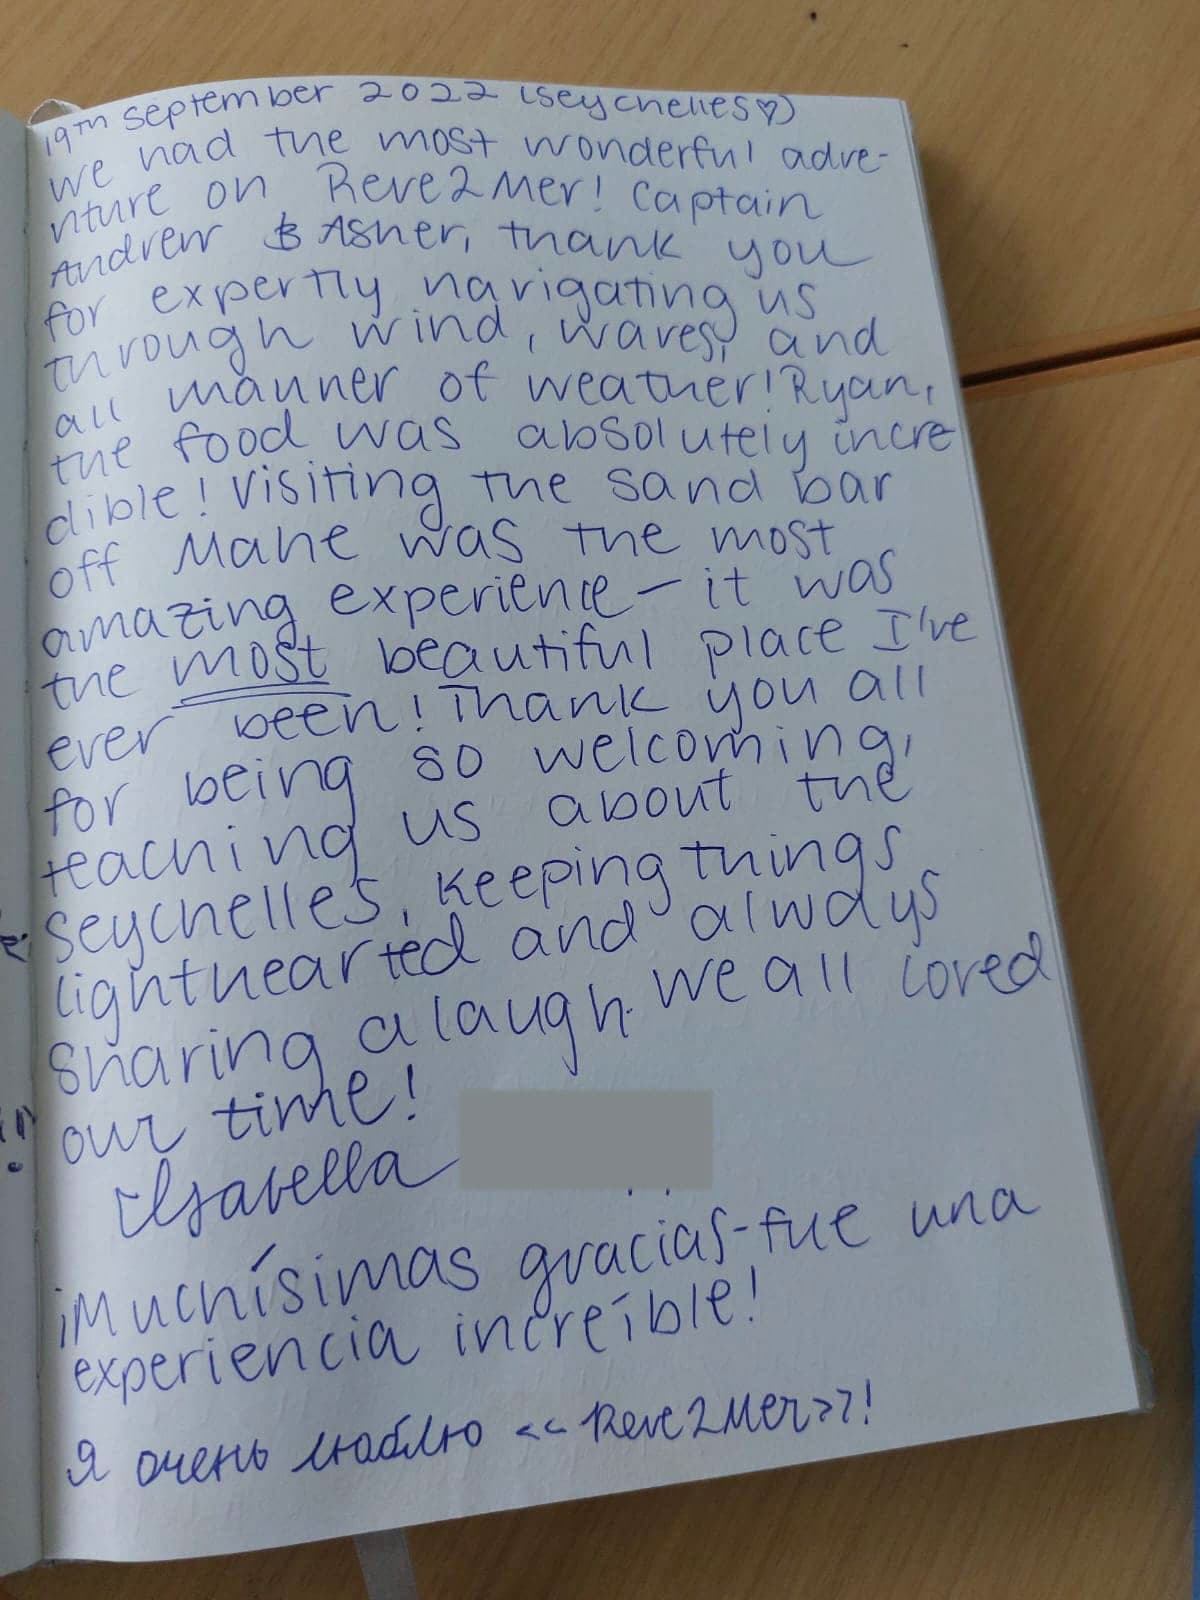 19TH September 2022 (Seychelles♡)
We had the most wonderful adve-
nture on Reve2Mer! Captain
Andrew & Asher, thank you
for expertly navigating us
through wind, waves, and
all manner of weather! Ryan,
the food was absolutely incre
dible! Visiting the sand bar
off Mahe was the most
amazing experience – it was
the most beautiful place I've
ever been! Thank you all
for being so welcoming,
teaching us about the
Seychelles, keeping things
lighthearted and always
sharing a laugh. We all loved
our time!
Isabella
¡Muchísimas gracias - fue una
experiencia increíble!
Я очень люблю <<Reve2Mer>>!